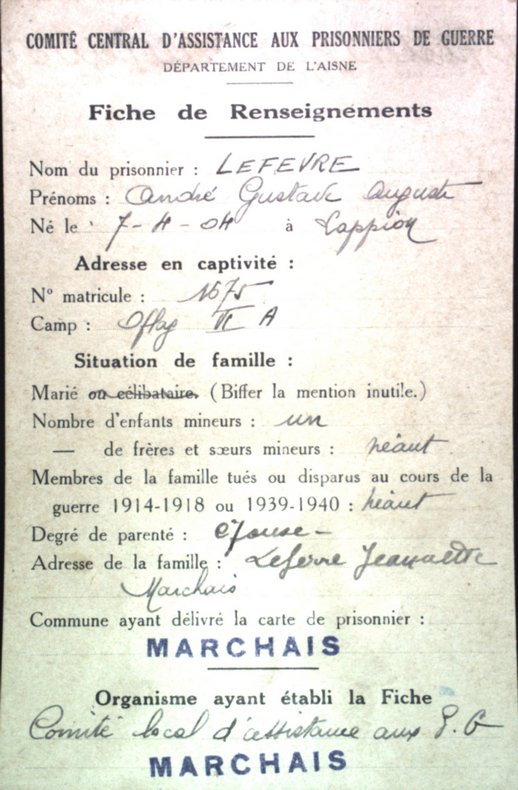 COMITÉ CENTRAL D'ASSISTANCE AUX PRISONNIERS DE GUERRE
DÉPARTEMENT DE L'AISNE
Fiche de Renseignements
Nom du prisonnier : LEFEVRE
Prénoms : André Gustave Auguste
Né le 7-4-04 à Lappion
Adresse en captivité :
N° matricule : 1675
Camp : Oflag VI A
Situation de famille :
Marié ou célibataire. (Biffer la mention inutile.)
Nombre d'enfants mineurs : un
— de frères et sœurs mineurs : néant
Membres de la famille tués ou disparus au cours de la
guerre 1914-1918 ou 1939-1940 : néant
Degré de parenté : épouse -
Adresse de la famille : Lefevre Jeannette
Marchais
Commune ayant délivré la carte de prisonnier :
MARCHAIS
Organisme ayant établi la Fiche
Comité local d'assistance aux P. G
MARCHAIS